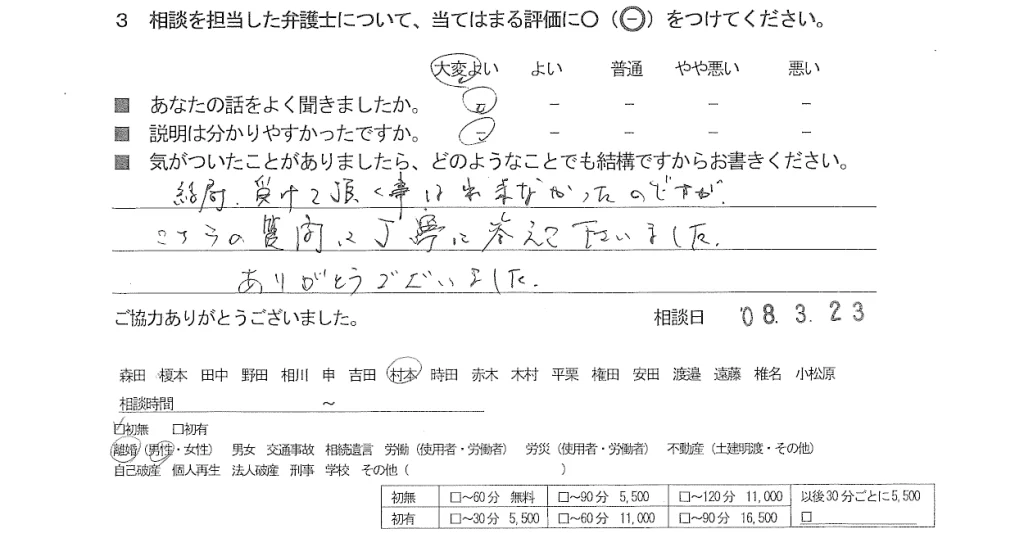 3 相談を担当した弁護士について、当てはまる評価に○（㊀）をつけてください。
大変よい よい 普通 やや悪い 悪い
■ あなたの話をよく聞きましたか。 － － － － －
■ 説明は分かりやすかったですか。 － － － － －
■ 気がついたことがありましたら、どのようなことでも結構ですからお書きください。
結局、受けて頂く事は出来なかったのですが、
こちらの質問に丁寧に答えて下さいました。
ありがとうございました。
ご協力ありがとうございました。 相談日 '08.3.23
森田 榎本 田中 野田 相川 申 吉田 村本 時田 赤木 木村 平栗 権田 安田 渡邉 遠藤 椎名 小松原
相談時間 ～
□初無 □初有
離婚（男性・女性） 男女 交通事故 相続遺言 労働（使用者・労働者） 労災（使用者・労働者） 不動産（土建明渡・その他）
自己破産 個人再生 法人破産 刑事 学校 その他（ ）
初無 □～60分 無料 □～90分 5,500 □～120分 11,000 以後30分ごとに5,500
初有 □～30分 5,500 □～60分 11,000 □～90分 16,500 □